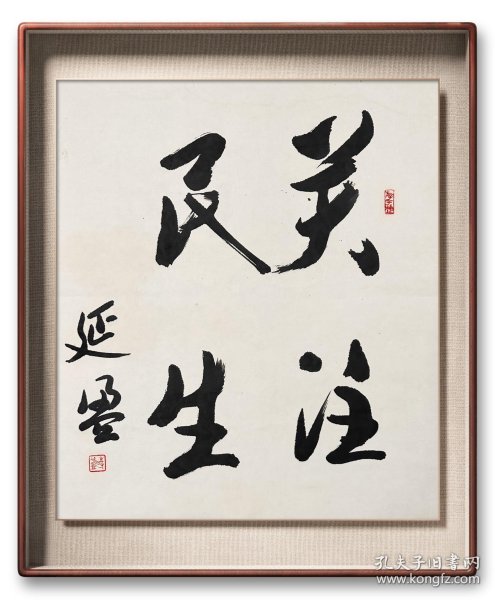 关注
民生
延
孔夫子旧书网
www.kongfz.com